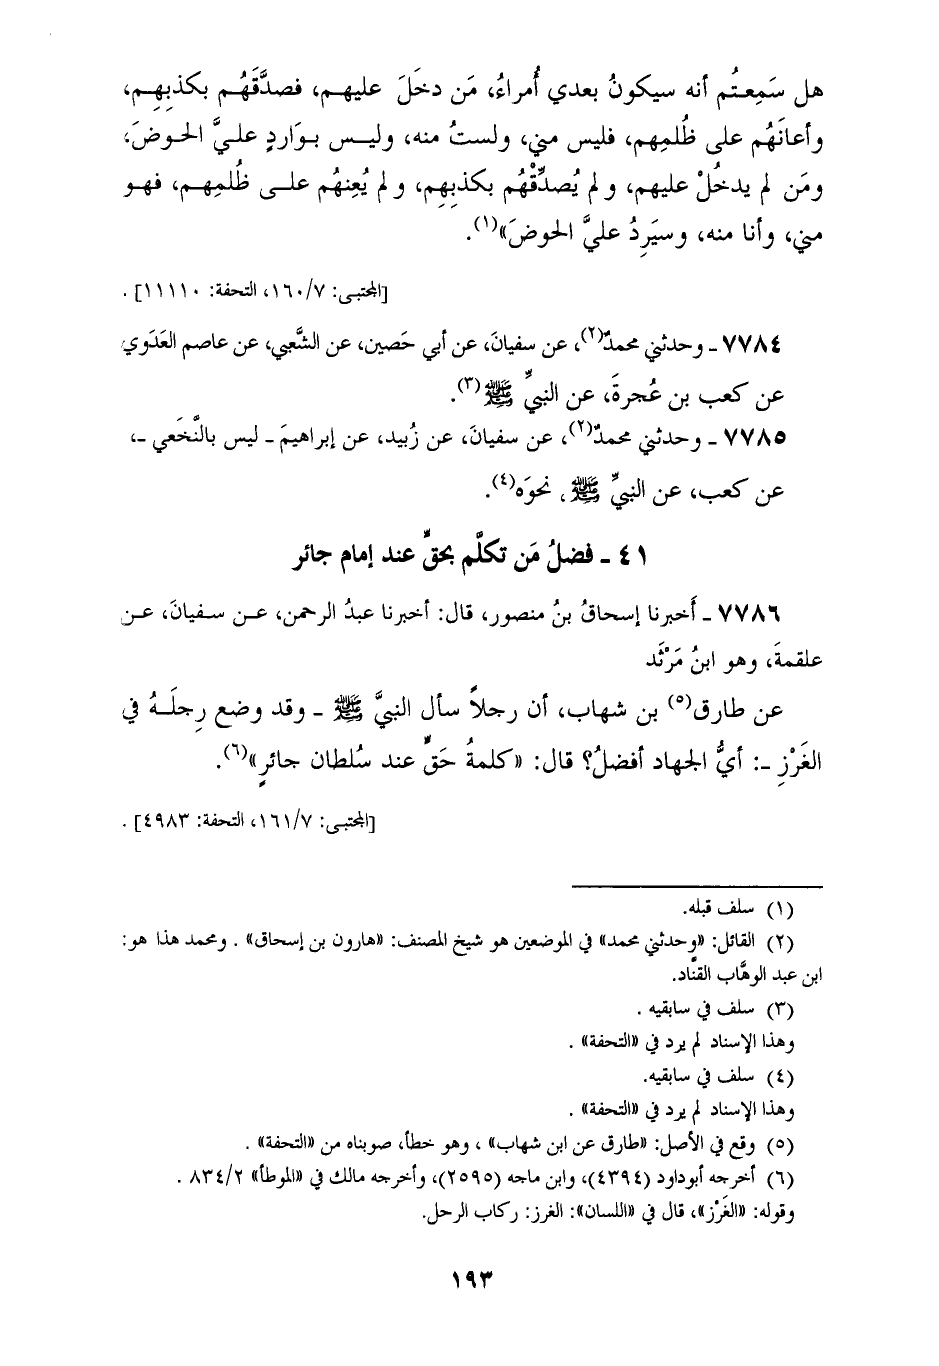 هل سَمِعتُم أنه سيكونُ بعدي أُمراءُ، مَن دخَلَ عليهم، فصدَّقَهُم بكذبِهِم،
وأعانَهُم على ظُلمِهم، فليس مني، ولستُ منه، وليس بوَاردٍ عليَّ الحوضَ،
ومَن لم يدخُلْ عليهم، ولم يُصدِّقْهُم بكذبِهِم، ولم يُعِنهُم على ظُلمِهم، فهو
مني، وأنا منه، وسيَرِدُ عليَّ الحوضَ»(١).
[المجتبى: ١٦٠/٧، التحفة: ١١١١٠] .
٧٧٨٤ ـ وحدثني محمدٌ(٢)، عن سفيانَ، عن أبي حَصين، عن الشَّعبي، عن عاصم العَدَوي
عن كعب بن عُجرةَ، عن النبيِّ ﷺ(٣).
٧٧٨٥ ـ وحدثني محمدٌ(٢)، عن سفيانَ، عن زُبيد، عن إبراهيمَ ـ ليس بالنَّخَعي ـ،
عن كعب، عن النبيِّ ﷺ، نحوَه(٤).
٤١ ـ فضلُ مَن تكلَّم بحقٍّ عند إمام جائر
٧٧٨٦ ـ أَخبرنا إسحاقُ بنُ منصور، قال: أخبرنا عبدُ الرحمن، عن سفيانَ، عن
علقمةَ، وهو ابنُ مَرْثَد
عن طارق(٥) بن شهاب، أن رجلاً سأل النبيَّ ﷺ ـ وقد وضع رِجلَهُ في
الغَرْزِ ـ: أيُّ الجهاد أفضلُ؟ قال: «كلمةُ حَقٍّ عند سُلطان جائرٍ»(٦).
[المجتبى: ١٦١/٧، التحفة: ٤٩٨٣] .
(١) سلف قبله.
(٢) القائل: «وحدثني محمد» في الموضعين هو شيخ المصنف: «هارون بن إسحاق» . ومحمد هذا هو:
ابن عبد الوهَّاب القنَّاد.
(٣) سلف في سابقيه .
وهذا الإسناد لم يرد في «التحفة» .
(٤) سلف في سابقيه.
وهذا الإسناد لم يرد في «التحفة» .
(٥) وقع في الأصل: «طارق عن ابن شهاب» ، وهو خطأ، صوبناه من «التحفة» .
(٦) أخرجه أبوداود (٤٣٩٤)، وابن ماجه (٢٥٩٥)، وأخرجه مالك في «الموطأ» ٨٣٤/٢ .
وقوله: «الغَرْز»، قال في «اللسان»: الغرز: ركاب الرحل.
١٩٣